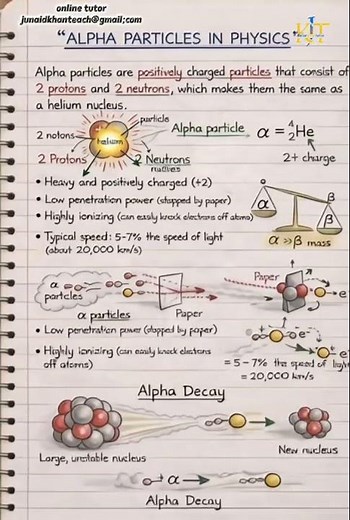 online tutor
junaidkhanteach@gmail;com
KIT
"ALPHA PARTICLES IN PHYSICS"
Alpha particles are positively charged particles that consist of
2 protons and 2 neutrons, which makes them the same as
a helium nucleus.
particle
2 notons
helium
Alpha particle α = ⁴₂He
2 Protons
2 Neutrons
2+ charge
• Heavy and positively charged (+2)
• Low penetration power (stopped by paper)
• Highly ionizing (can easily knock electrons off atoms)
• Typical speed: 5-7% the speed of light
(about 20,000 km/s)
α
β
β
α >> β mass
α
particles
α particles
Paper
Paper
e
• Low penetration power (stopped by paper)
e⁻
• Highly ionizing (can easily knock electrons
off atoms)
e⁻
= 5-7% the speed of light
= 20,000 km/s
Alpha Decay
Large, unstable nucleus
New nucleus
α
Alpha Decay